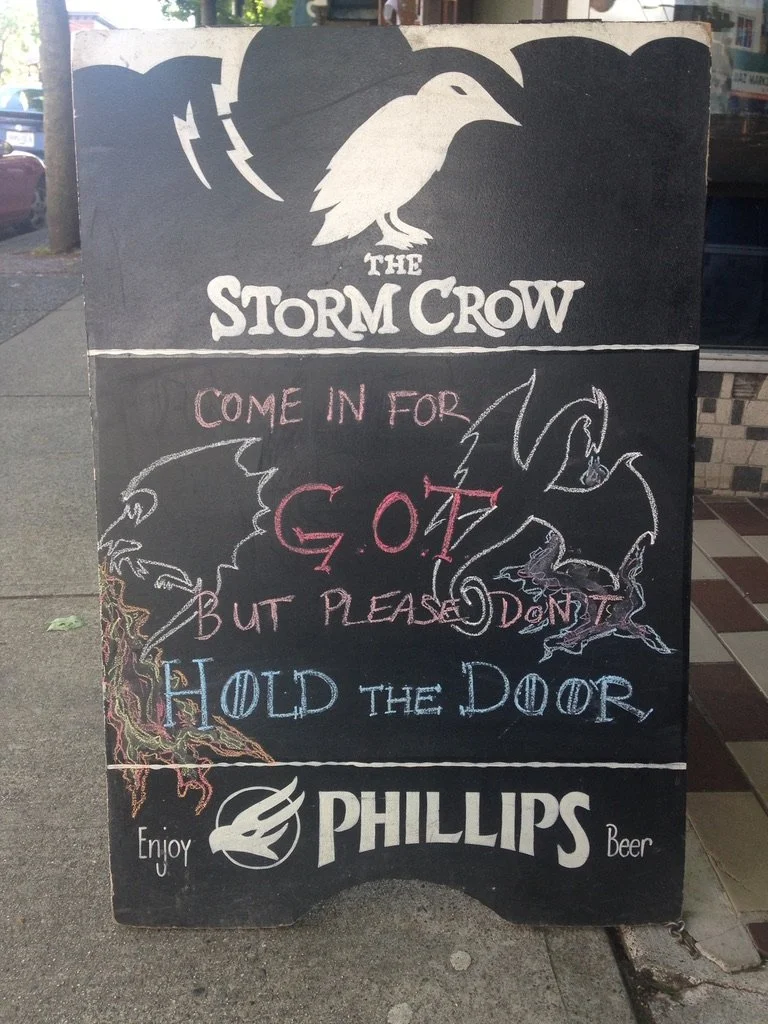 THE
STORM CROW
COME IN FOR
G.O.T
BUT PLEASE DON'T
HOLD THE DOOR
Enjoy PHILLIPS Beer